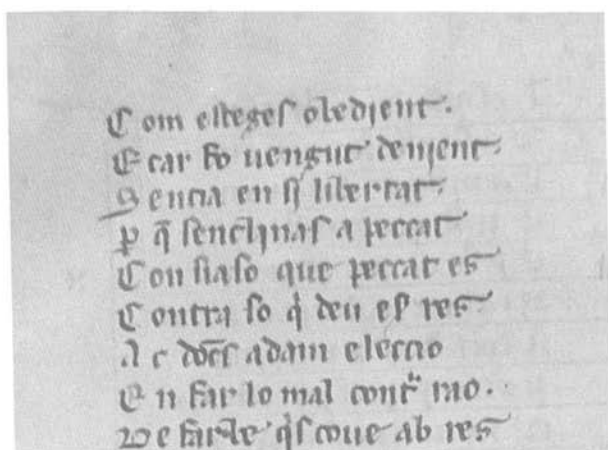 Com esteges obedient.
E car fo uengut denjent.
Sencia en si libertat.
P q̄ senclinas a peccat
Con siaso que peccat es
Contra so q̇ deu es res
Ac doc̄s adam eleccio
En far lo mal contᵃ rao.
De far le q̇s coue ab res